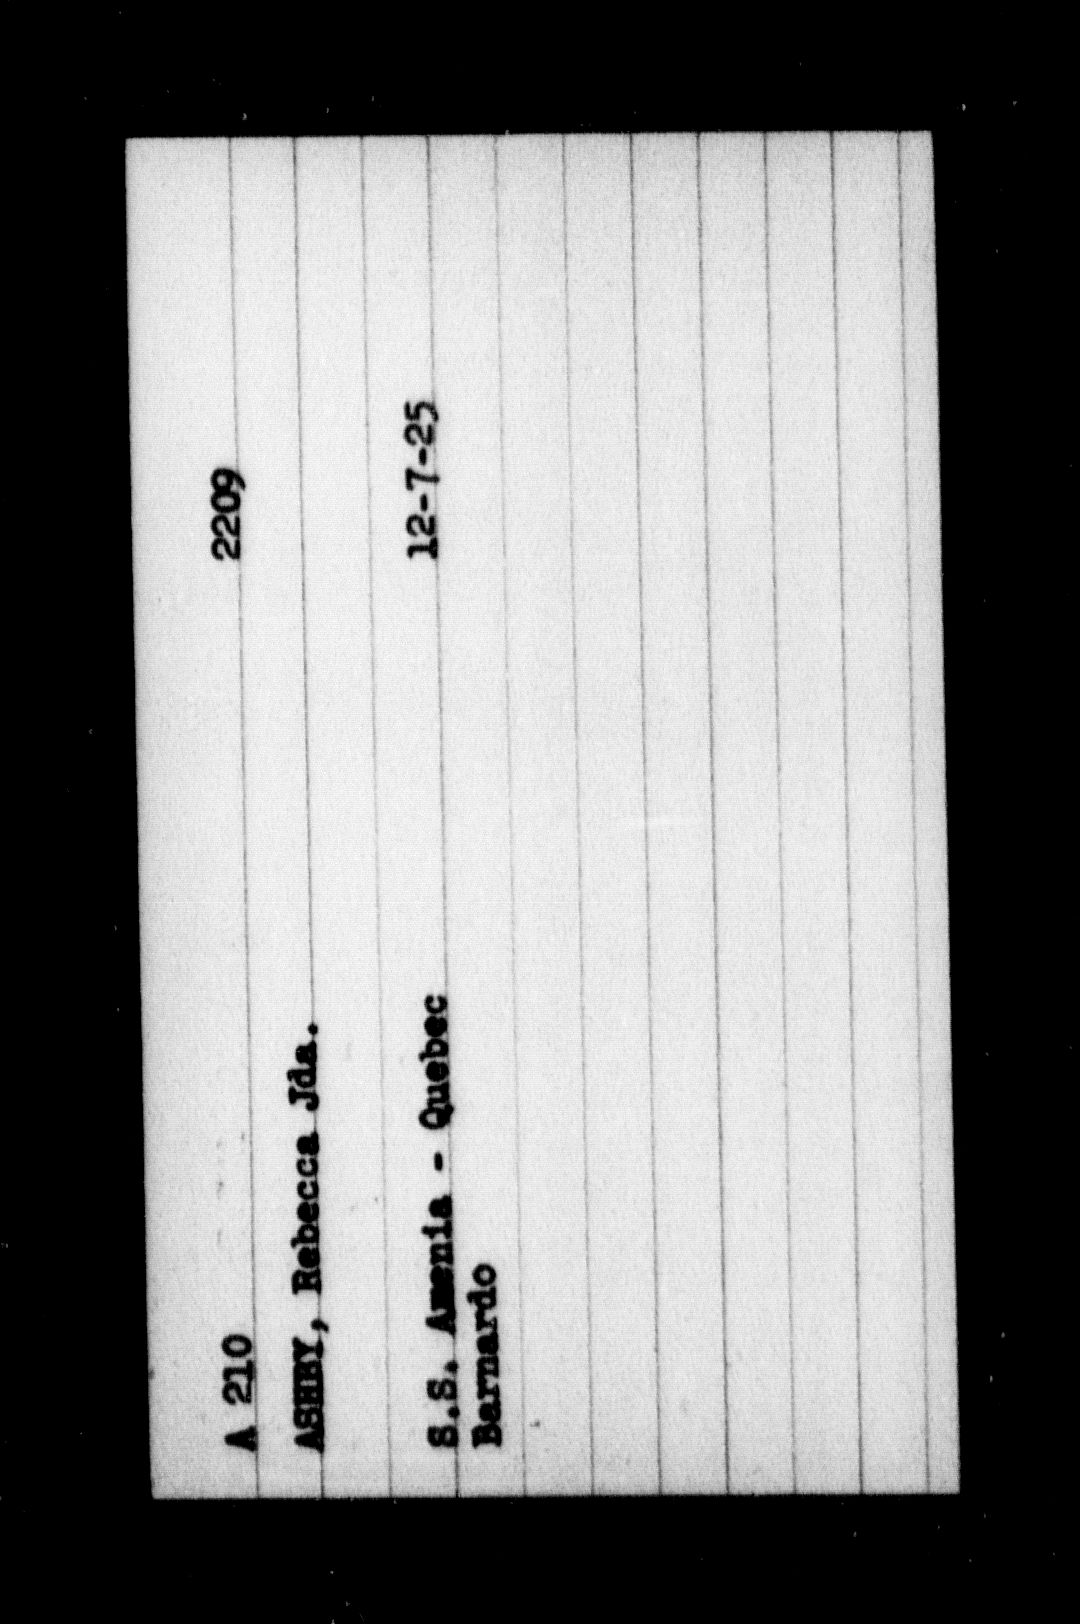 A 210 2209
ASHBY, Rebecca Jda.
S.S. Amenia - Quebec 12-7-25
Barnardo